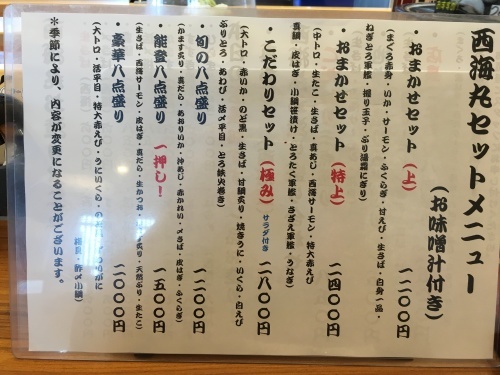 西海丸セットメニュー
(お味噌汁付き)
・おまかせセット(上) 一二〇〇円
(まぐろ赤身・いか・サーモン・ふくらぎ・甘えび・生さば・白身一品・
ねぎとろ軍艦・握り玉子・ぶり湯霜にぎり)
・おまかせセット(特上) 二四〇〇円
(中トロ・生たこ・生さば・真あじ・西海サーモン・特大赤えび
真鯛・皮はぎ・小鯛笹漬け・とろたく軍艦・さざえ軍艦・うなぎ)
・こだわりセット(極み) サラダ付き 二八〇〇円
(大トロ・赤いか・のど黒・生さば・甘鯛炙り・焼きうに・いくら・白えび
ぶりとろ・あわび・活〆平目・とろ鉄火巻き)
・旬の八点盛り 一二〇〇円
(かます炙り・真だら・あおりいか・沖あじ・赤かれい・〆さば・皮はぎ・ふくらぎ)
・能登八点盛り 一押し! 一五〇〇円
(生さば・西海サーモン・皮はぎ・真だら・生かつお・炙り・天然ぶり・生たこ)
・豪華八点盛り 二〇〇〇円
(大トロ・活平目・特大赤えび・うにいくら・の
貝・酢〆小鯛)
※季節により、内容が変更になることがございます。